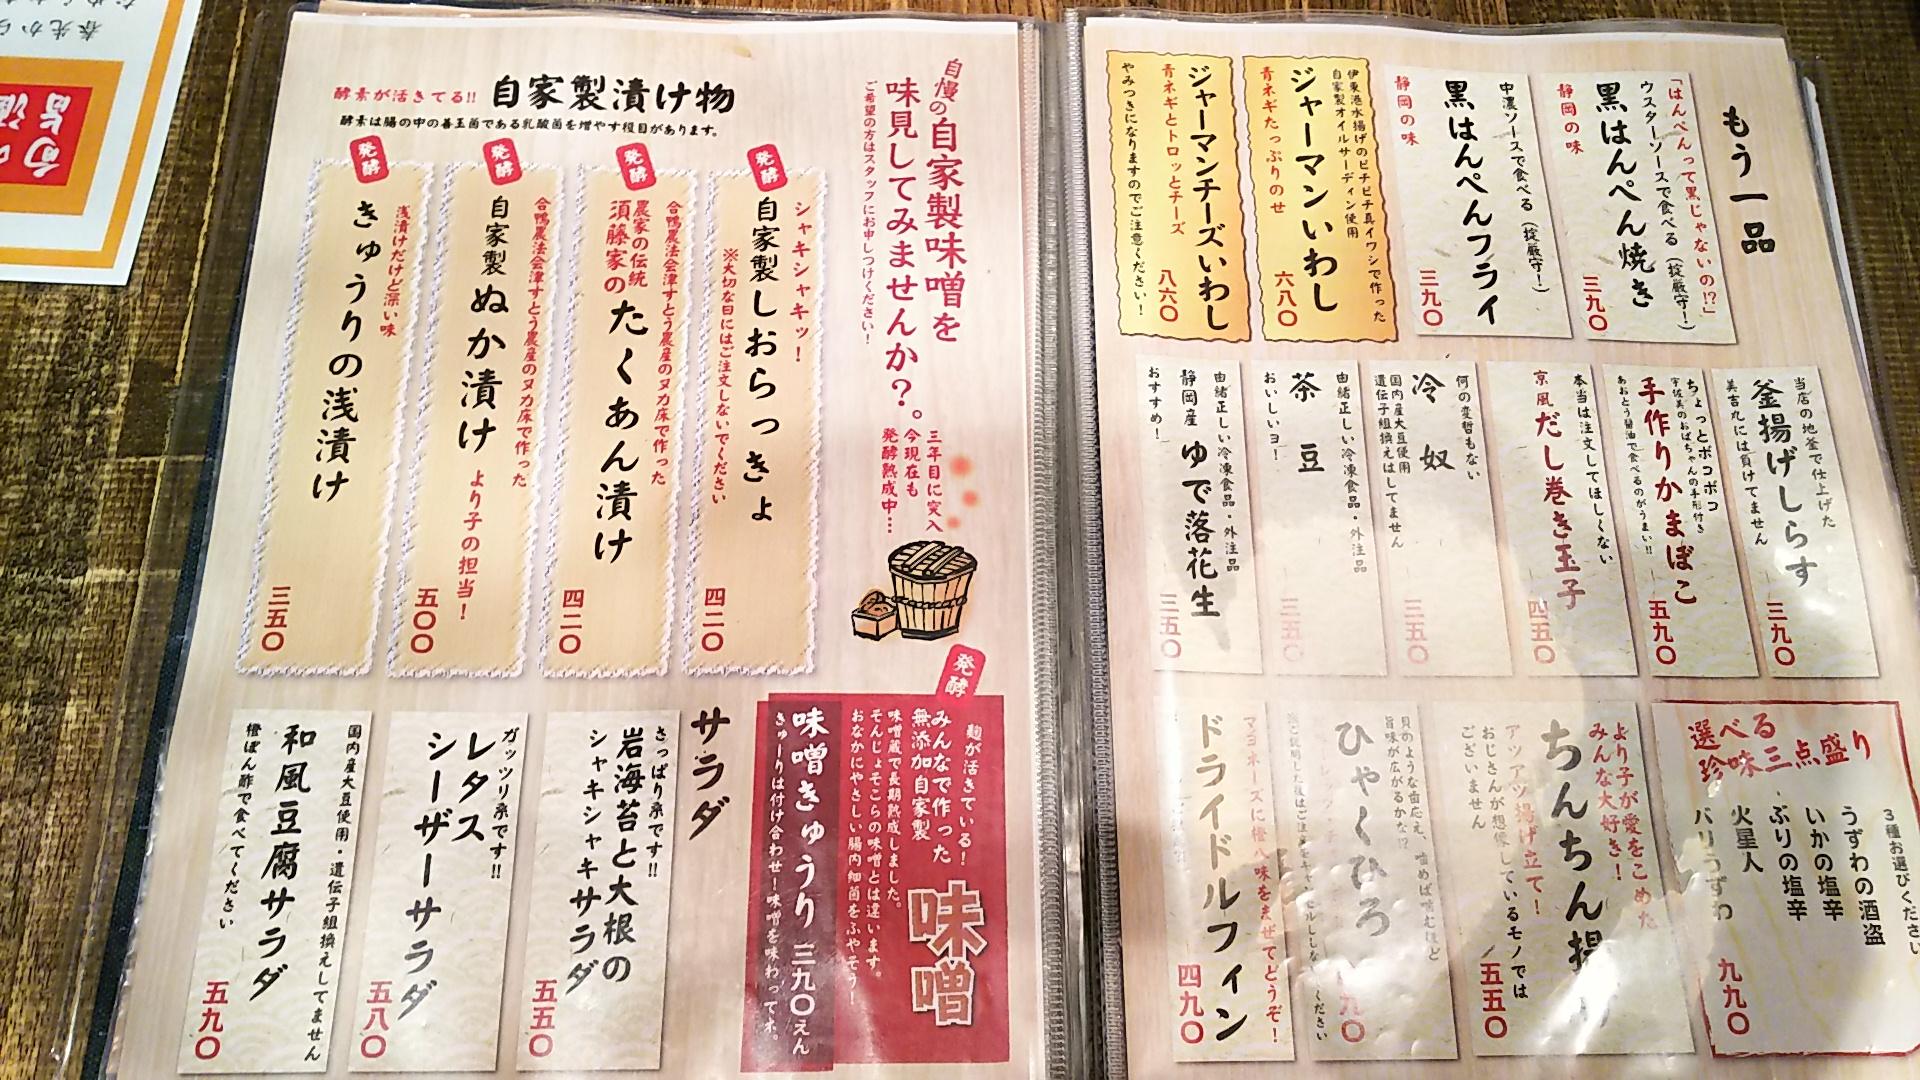 もう一品
「はんぺんって黒じゃないの!?」
ウスターソースで食べる（掟厳守！）
黒はんぺん焼き
静岡の味
三九〇
中濃ソースで食べる（掟厳守！）
黒はんぺんフライ
静岡の味
三九〇
伊東港水揚げのピチピチ真イワシで作った
自家製オイルサーディン使用
ジャーマンいわし
青ネギたっぷりのせ
六八〇
ジャーマンチーズいわし
青ネギとトロッとチーズ
やみつきになりますのでご注意ください！
八六〇
当店の地釜で仕上げた
釜揚げしらす
美吉丸には負けてません
三九〇
ちょっとボコボコ
宇佐美のおばちゃんの手形付き
手作りかまぼこ
あおとう醤油で食べるのがうまい!!
五九〇
本当は注文してほしくない
京風だし巻き玉子
四五〇
何の変哲もない
冷奴
国内産大豆使用
遺伝子組換えはしてません
三五〇
由緒正しい冷凍食品・外注品
茶豆
おいしいヨ！
三五〇
由緒正しい冷凍食品・外注品
静岡産 ゆで落花生
おすすめ！
三五〇
選べる
珍味三点盛り
3種お選びください
うずわの酒盗
いかの塩辛
ぶりの塩辛
火星人
バリうずわ
九九〇
より子が愛をこめた
みんな大好き！
ちんちん揚
アツアツ揚げ立て！
おじさんが想像しているモノでは
ございません
五五〇
貝のような歯応え、噛めば噛むほど
旨味が広がるかな!?
ひゃくひろ
九〇
マヨネーズに橙八味をまぜてどうぞ！
ドライドルフィン
四九〇
自慢の自家製味噌を
味見してみませんか？。
ご希望の方はスタッフにお申しつけください！
三年目に突入
今現在も
発酵熟成中…
酵素が活きてる!! 自家製漬け物
酵素は腸の中の善玉菌である乳酸菌を増やす役目があります。
発酵
シャキシャキッ！
自家製しおらっきょ
※大切な日にはご注文しないでください
四二〇
発酵
合鴨農法会津すとう農産のヌカ床で作った
農家の伝統
須藤家のたくあん漬け
四二〇
発酵
合鴨農法会津すとう農産のヌカ床で作った
自家製ぬか漬け より子の担当！
五〇〇
発酵
浅漬けだけど深い味
きゅうりの浅漬け
三五〇
発酵
麹が活きている！
みんなで作った
無添加自家製
味噌
味噌蔵で長期熟成しました。
そんじょそこらの味噌とは違います。
おなかにやさしい腸内細菌をふやそう！
味噌きゅうり 三九〇えん
きゅーりは付け合わせ！味噌を味わってネ。
サラダ
さっぱり系です!!
岩海苔と大根の
シャキシャキサラダ
五五〇
ガッツリ系です!!
レタス
シーザーサラダ
五八〇
国内産大豆使用・遺伝子組換えしてません
和風豆腐サラダ
橙ぽん酢で食べてください
五九〇